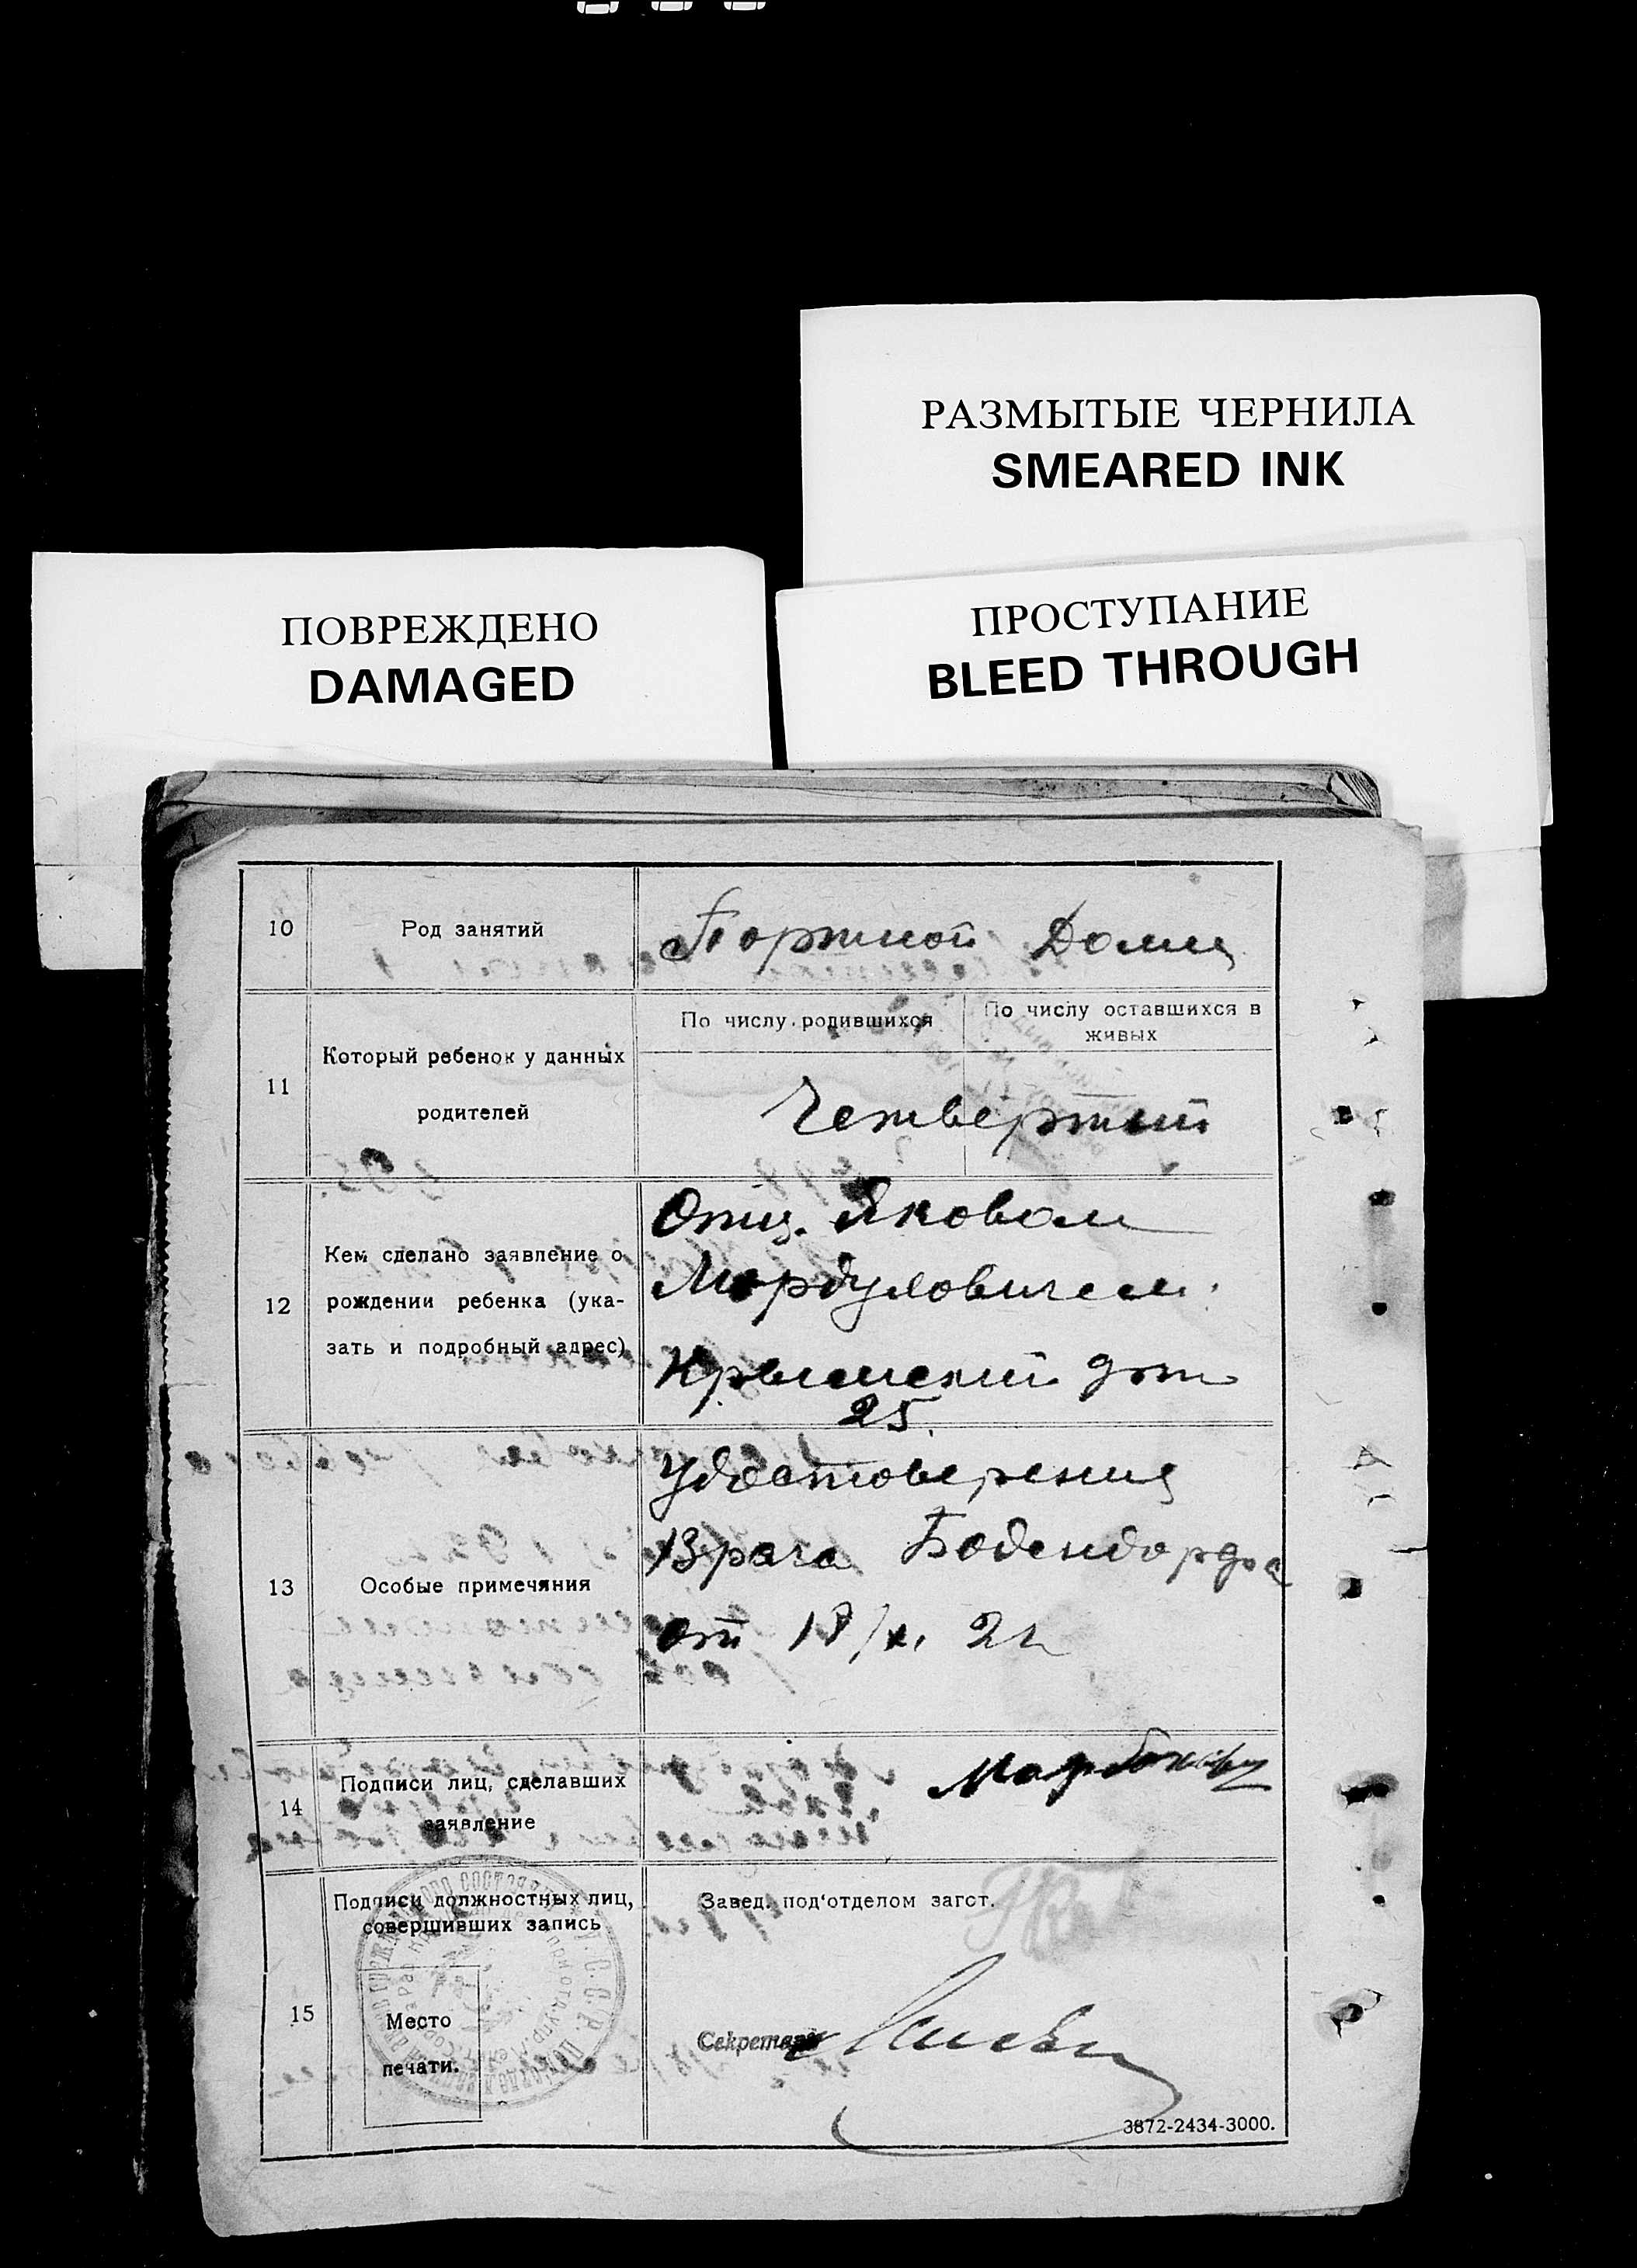 РАЗМЫТЫЕ ЧЕРНИЛА
SMEARED INK
ПОВРЕЖДЕНО
DAMAGED
ПРОСТУПАНИЕ
BLEED THROUGH
10
Род занятий
Портной
11
Который ребенок у данных
родителей
По числу родившихся
По числу оставшихся в
живых
Четвертый
12
Кем сделано заявление о
рождении ребенка (ука-
зать и подробный адрес)
Отц. Яковом
Мордуховичем
Крымский
25.
13
Особые примечания
Удостоверения
Врача Бодендорфа
от 18/х.
14
Подписи лиц, сделавших
заявление
15
Подписи должностных лиц,
совершивших запись
Место
печати.
Завед. под'отделом загст.
Секретарь
3872-2434-3000.